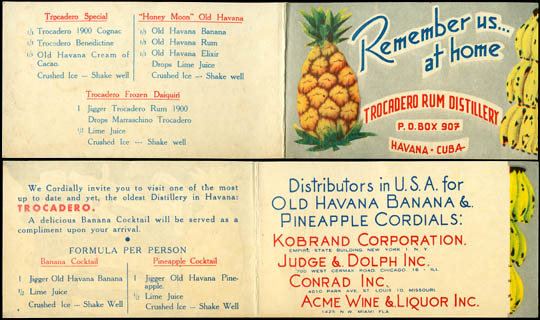 Trocadero Special
1/3 Trocadero 1900 Cognac
1/3 Trocadero Benedictine
1/3 Old Havana Cream of
Cacao.
Crushed Ice — Shake well
"Honey Moon" Old Havana
1/3 Old Havana Banana
1/3 Old Havana Rum
1/3 Old Havana Elixir
Drops Lime Juice
Crushed Ice --- Shake well
Trocadero Frozen Daiquiri
1 Jigger Trocadero Rum 1900
Drops Marraschino Trocadero
1/2 Lime Juice
Crushed Ice --- Shake well
Remember us...
at home
TROCADERO RUM DISTILLERY
P.O.BOX 907
HAVANA - CUBA
We Cordially invite you to visit one of the most
up to date and yet, the oldest Distillery in Havana:
TROCADERO.
A delicious Banana Cocktail will be served as a
compliment upon your arrival.
FORMULA PER PERSON
Banana Cocktail
1 Jigger Old Havana Banana
1/2 Lime Juice
Crushed Ice -- Shake Well
Pineapple Cocktail
1 Jigger Old Havana Pine-
apple.
1/2 Lime Juice
Crushed Ice -- Shake Well
Distributors in U.S.A. for
OLD HAVANA BANANA &
PINEAPPLE CORDIALS:
KOBRAND CORPORATION.
EMPIRE STATE BUILDING NEW YORK 1. N. Y.
JUDGE & DOLPH INC.
700 WEST CERMAK ROAD CHICAGO 16 - ILL
CONRAD INC.
4010 PARK AVE. ST. LOUIS 10, MISSOURI
ACME WINE & LIQUOR INC.
1425 N.W. MIAMI FLA